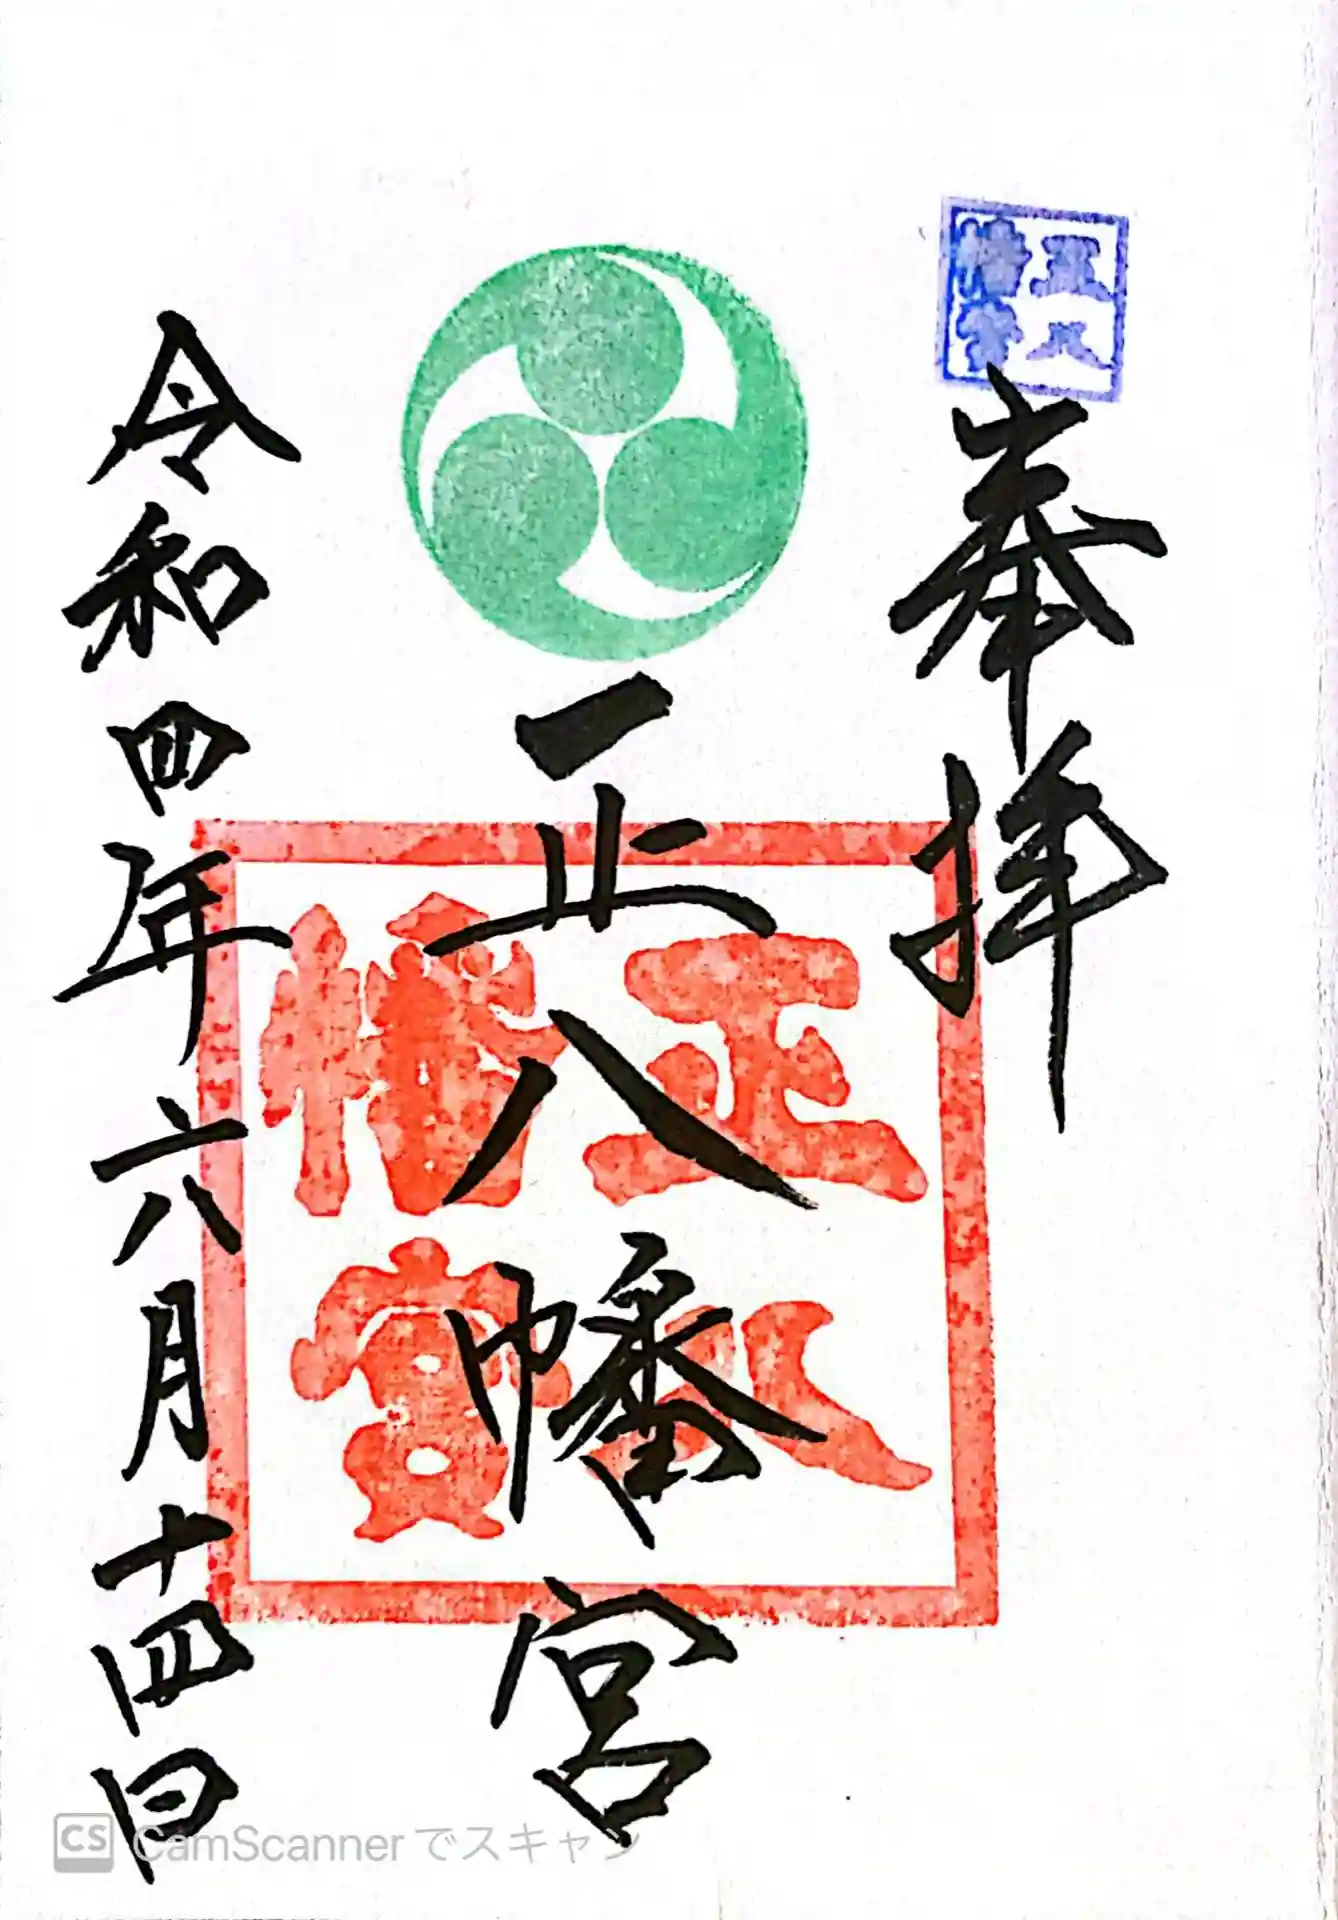 奉拝
正八幡宮
正八幡宮
正八幡宮
令和四年六月十四日
CS CamScannerでスキャン